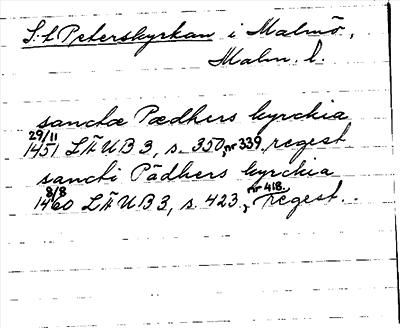 S:t Peterskyrkan i Malmö,
Malm. l.
sanctæ Pædhers kyrckia
29/11 1451 LÄUB 3, s. 350, nr 339. regest
sancti Pädhers kyrckia
8/8 1460 LÄUB 3, s. 423, nr 418. regest.